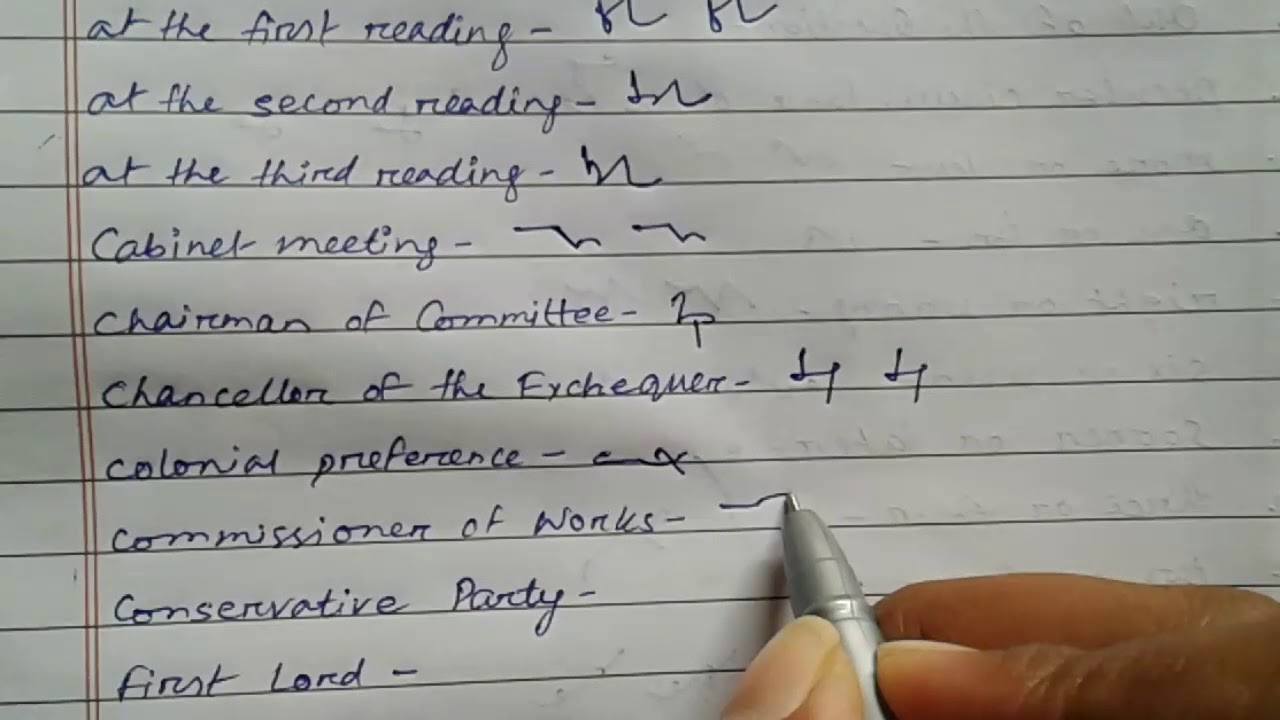 at the first reading -
at the second reading -
at the third reading -
Cabinet meeting -
Chairman of Committee -
Chancellor of the Exchequer -
Colonial preference -
Commissioner of Works -
Conservative Party -
first Lord -